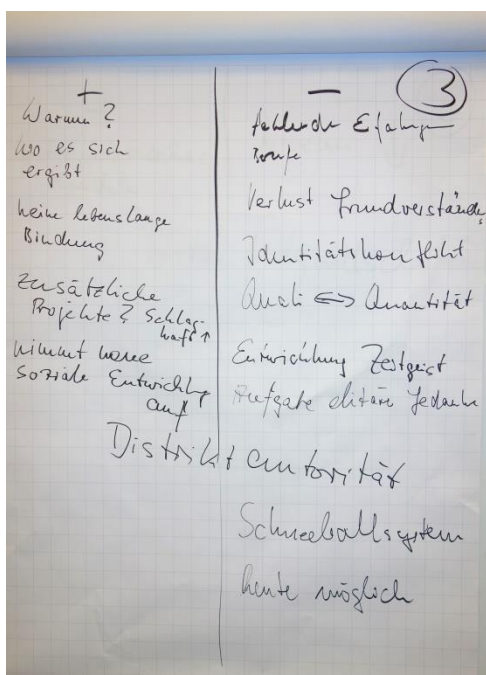 +
Warum?
wo es sich
ergibt
keine lebenslange
Bindung
Zusätzliche
Projekte? Schlag-
kraft ↑
nimmt neue
soziale Entwicklung
auf
− 3
fehlende
Verlust Grundverständn.
Identitätskonflikt
Quali ⇔ Quantität
Entwicklung Zeitgeist
Aufgabe elitäre Gedanken
Distriktautorität
Schneeballsystem
heute möglich